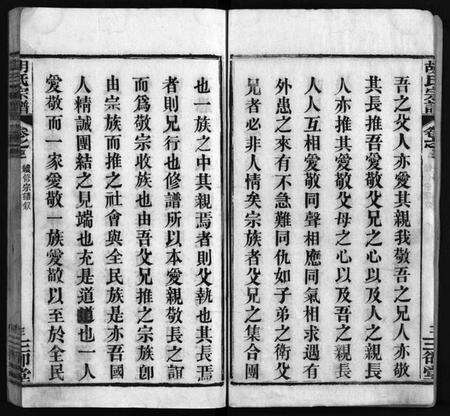 胡氏宗譜
卷之三
三
三卿堂
吾之父人亦愛其親我敬吾之兄人亦敬
其長推吾愛敬父兄之心以及人之親長
人亦推其愛敬父母之心以及吾之親長
人人互相愛敬同聲相應同氣相求遇有
外患之來有不急難同仇如子弟之衛父
兄者必非人情矣宗族者父兄之集合團
也一族之中其親焉者則父執也其長焉
者則兄行也修譜所以本愛親敬長之誼
而爲敬宗收族也由吾父兄推之宗族卽
由宗族而推之社會與全民族是亦吾國
人精誠團結之見端也充是道也一人
愛敬而一家愛敬一族愛敬以至於全民
胡氏宗譜
卷之三
三卿堂